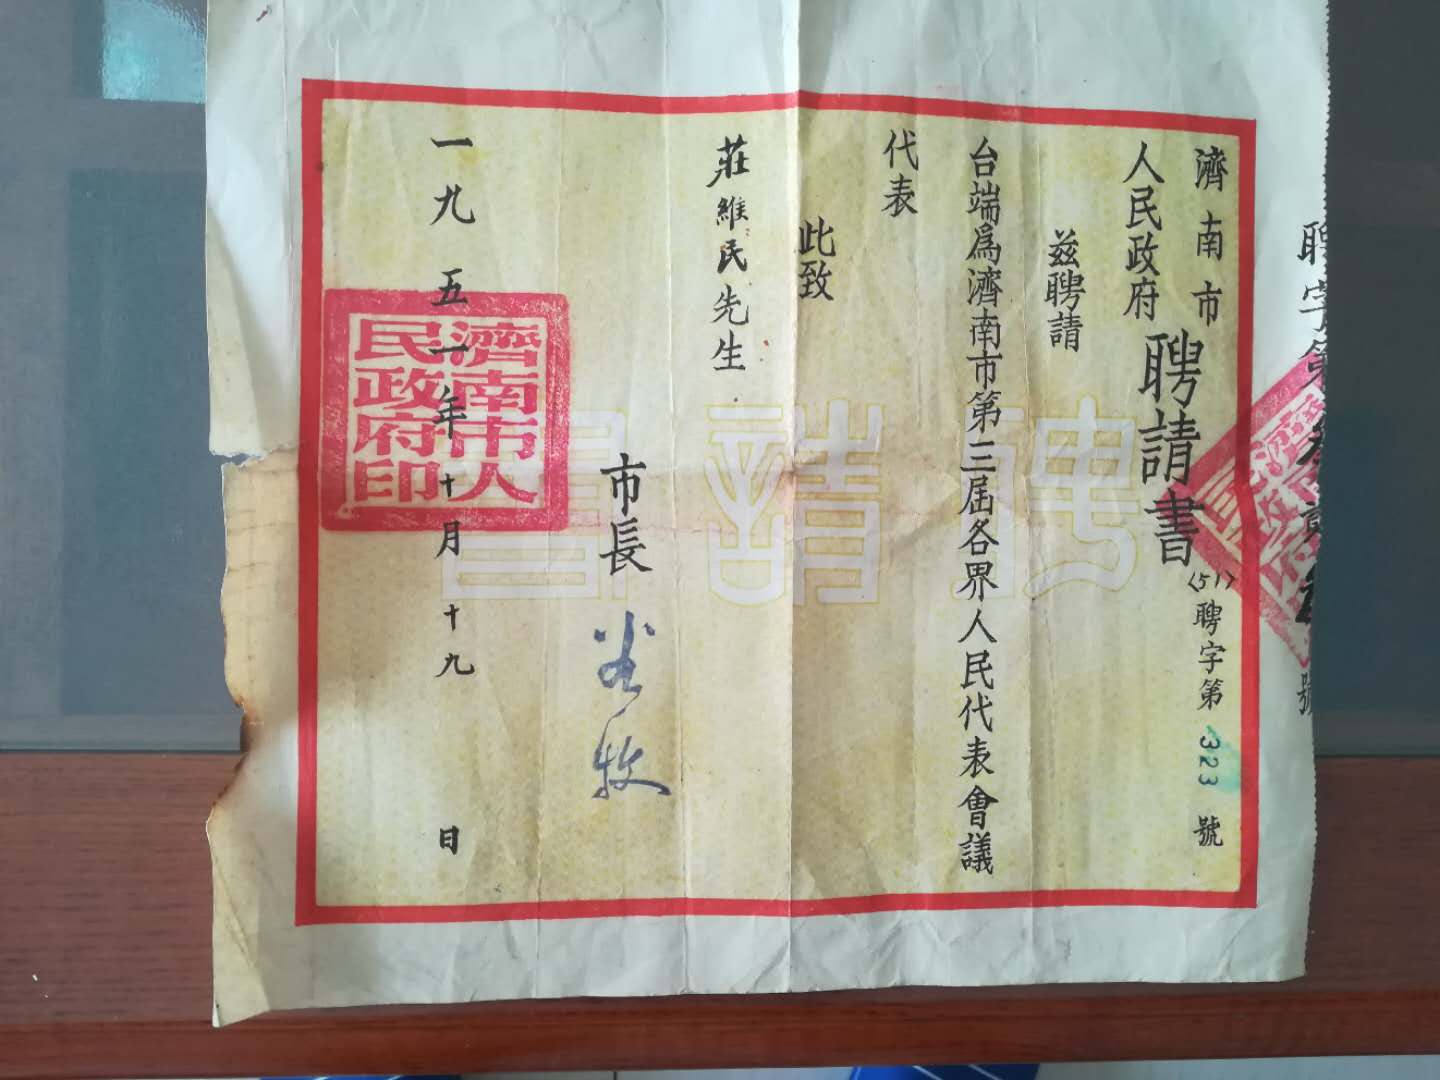 聘字第叁
號
濟南市
人民政府
聘請書
(51)聘字第323號
兹聘請
台端爲濟南市第三屆各界人民代表會議
代表
此致
莊維民先生
市長
一九五一年十月十九日
濟南市人
民政府印
聘請書